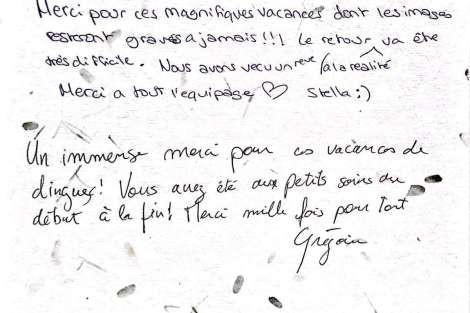 Merci pour ces magnifiques vacances dont les images
resteront gravés a jamais!!! Le retour va être
très difficile. Nous avons vécu un reve /a la réalité
Merci a tout l'equipage ♡ Stella :)
Un immense merci pour ces vacances de
dingues! Vous avez été aux petits soins du
début à la fin! Merci mille fois pour tout
Grégoire